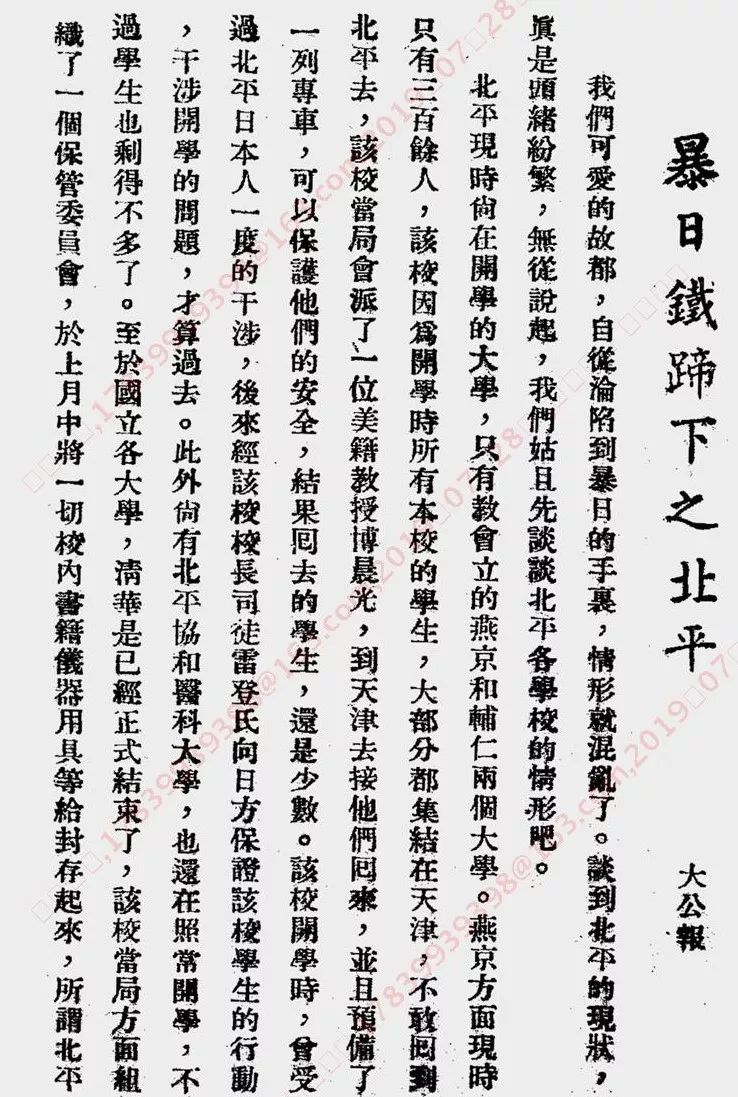 暴日鐵蹄下之北平
大公報
我們可愛的故都，自從淪陷到暴日的手裏，情形就混亂了。談到北平的現狀，
眞是頭緒紛繁，無從說起，我們姑且先談談北平各學校的情形吧。
北平現時尙在開學的大學，只有敎會立的燕京和輔仁兩個大學。燕京方面現時
只有三百餘人，該校因爲開學時所有本校的學生，大部分都集結在天津，不敢囘到
北平去，該校當局會派了一位美籍敎授博晨光，到天津去接他們囘來，並且預備了
一列專車，可以保護他們的安全，結果囘去的學生，還是少數。該校開學時，曾受
過北平日本人一度的干涉，後來經該校校長司徒雷登氏向日方保證該校學生的行動
，干涉開學的問題，才算過去。此外尙有北平協和醫科大學，也還在照常開學，不
過學生也剩得不多了。至於國立各大學，淸華是已經正式結束了，該校當局方面組
織了一個保管委員會，於上月中將一切校內書籍儀器用具等給封存起來，所謂北平